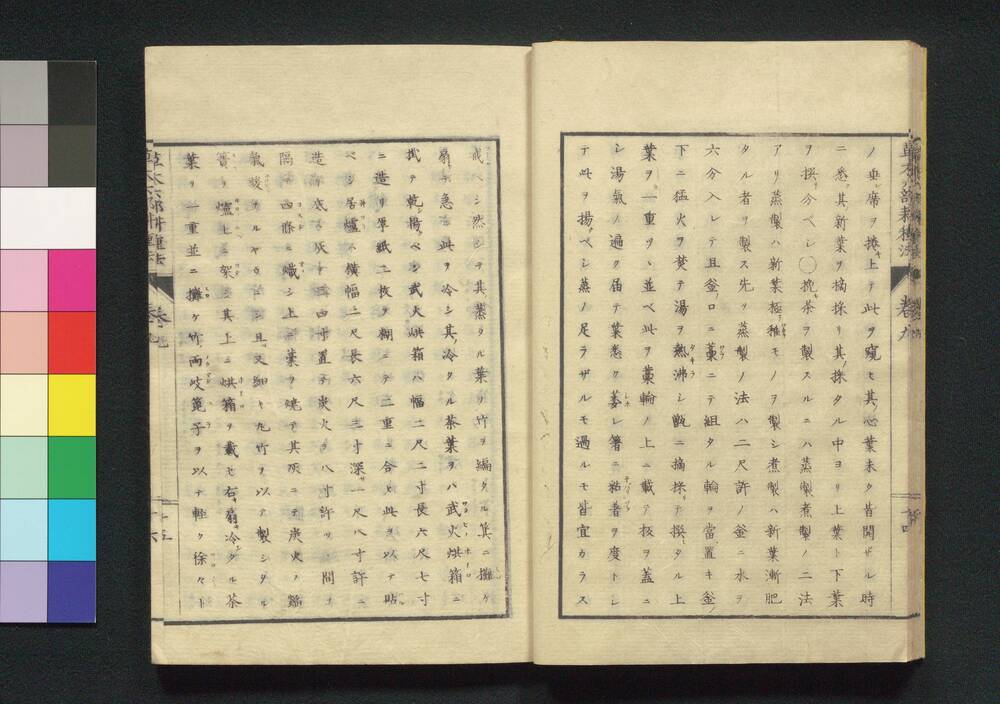 ノ垂席ヲ捲上テ此ヲ窺モ其心葉未タ皆開ザル時
ニ悉ク其新葉ヲ摘採リ其採タル中ヨリ上葉ト下葉
ヲ撰ミ分ベシ〇挽茶ヲ製スルニハ蒸製煮製ノ二法
アリ蒸製ハ新葉極稚モノヲ製シ煮製ハ新葉漸肥
タル者ヲ製ス先ヅ蒸製ノ法ハ二尺許ノ釜ニ水ヲ
六分入レテ且釜ノ口ニ藁ニテ組タル輪ヲ當置キ釜ノ
下ニ猛火ヲ焚テ湯ヲ熱沸シ甑ニ摘採テ撰タル上
葉ヲ一重ヅヽ並ベ此ヲ藁輪ノ上ニ載テ板ヲ蓋ニ
シ湯氣ノ遍ク届テ葉悉ク萎レ箸ニ粘着ヲ度トシ
テ此ヲ揚ベシ蒸ノ足ラザルモ過ルモ皆宜カラス
草木六部耕種法
卷九
或ベシ然シテ其蒸タル葉ヲ竹ヲ編タル箕ニ攤ゲ
扇テ急ニ此ヲ冷シ其冷タル茶葉ヲハ武火烘箱ニ
攤テ乾揚ベシ武火烘箱ハ幅二尺二寸長六尺七寸
ニ造リ厚紙二枚ヲ糊ニテ二重ニ合セ此ヲ以テ貼ル
ベシ居爐ハ横幅二尺長六尺三寸深サ一尺八寸許ニ
造リ底ニ灰ヲ三四寸置テ炭火ヲ八寸許ヅヽ間ヲ
隔テ四條ニ熾シ上ニ藁ヲ焼テ其灰ニテ炭火ノ
氣ヲルヤウニシ且又細キ丸竹ヲ以テ製シタル
簀ヲ爐上ニ架シ其上ニ烘箱ヲ載モ右ノ扇キ冷タル茶
葉ヲ一重並ニ攤ゲ竹両岐箆子ヲ以テ軽ク徐々ト
草木六部耕種法
卷九